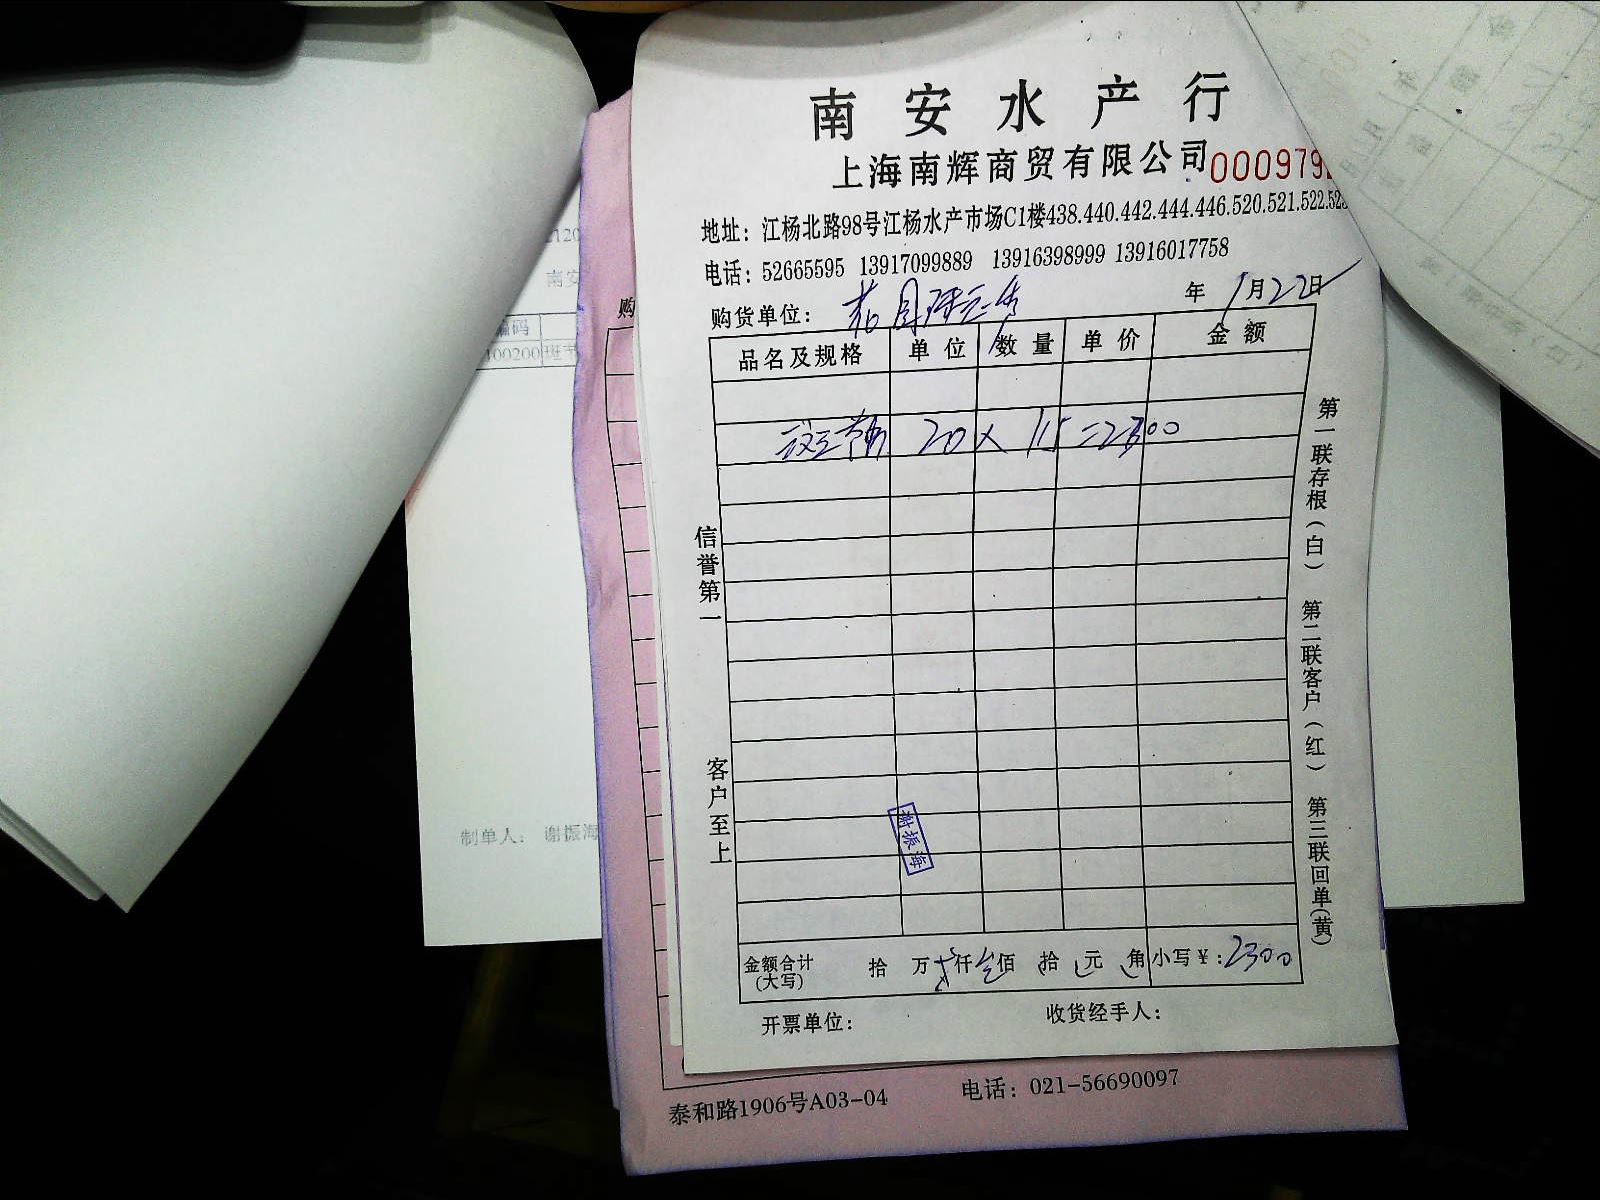 南安水产行
上海南辉商贸有限公司 000979
地址：江杨北路98号江杨水产市场C1楼438.440.442.444.446.520.521.522.523
电话：52665595 13917099889 13916398999 13916017758
购货单位： 年 1月22日
品名及规格 单位 数量 单价 金额
斑节 20× 115=2300
信誉第一
客户至上
谢振海
第一联存根（白） 第二联客户（红） 第三联回单（黄）
金额合计 拾 万 仟 佰 拾 元 角 小写￥：2300
（大写）
开票单位： 收货经手人：
泰和路1906号A03-04 电话：021-56690097
购
2120
南安
编码
100200 班节
制单人： 谢振海